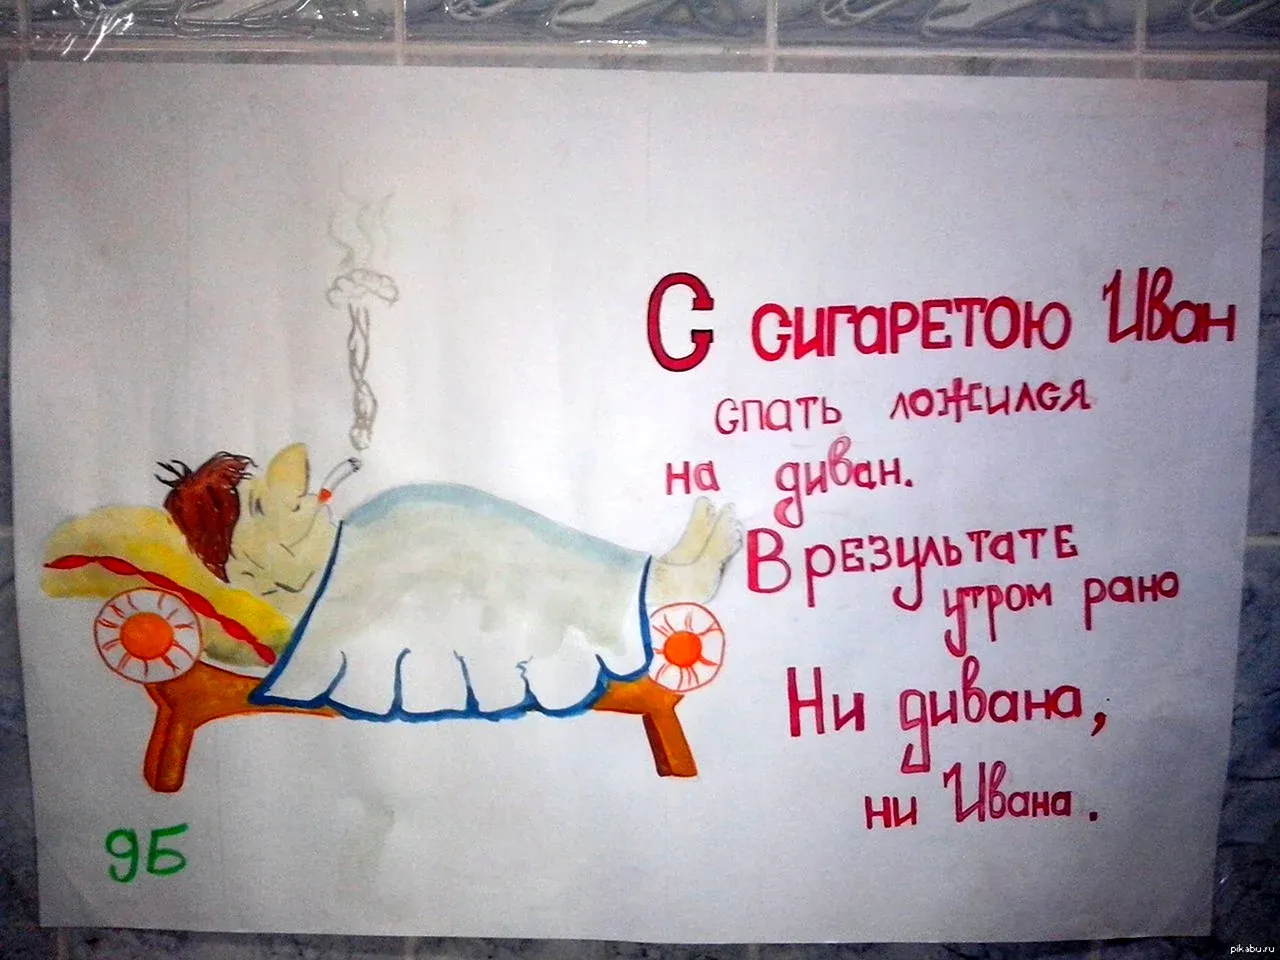 С СИГАРЕТОЮ Иван
спать ложился
на диван.
В результате
утром рано
Ни дивана,
ни Ивана.
9Б
pikabu.ru